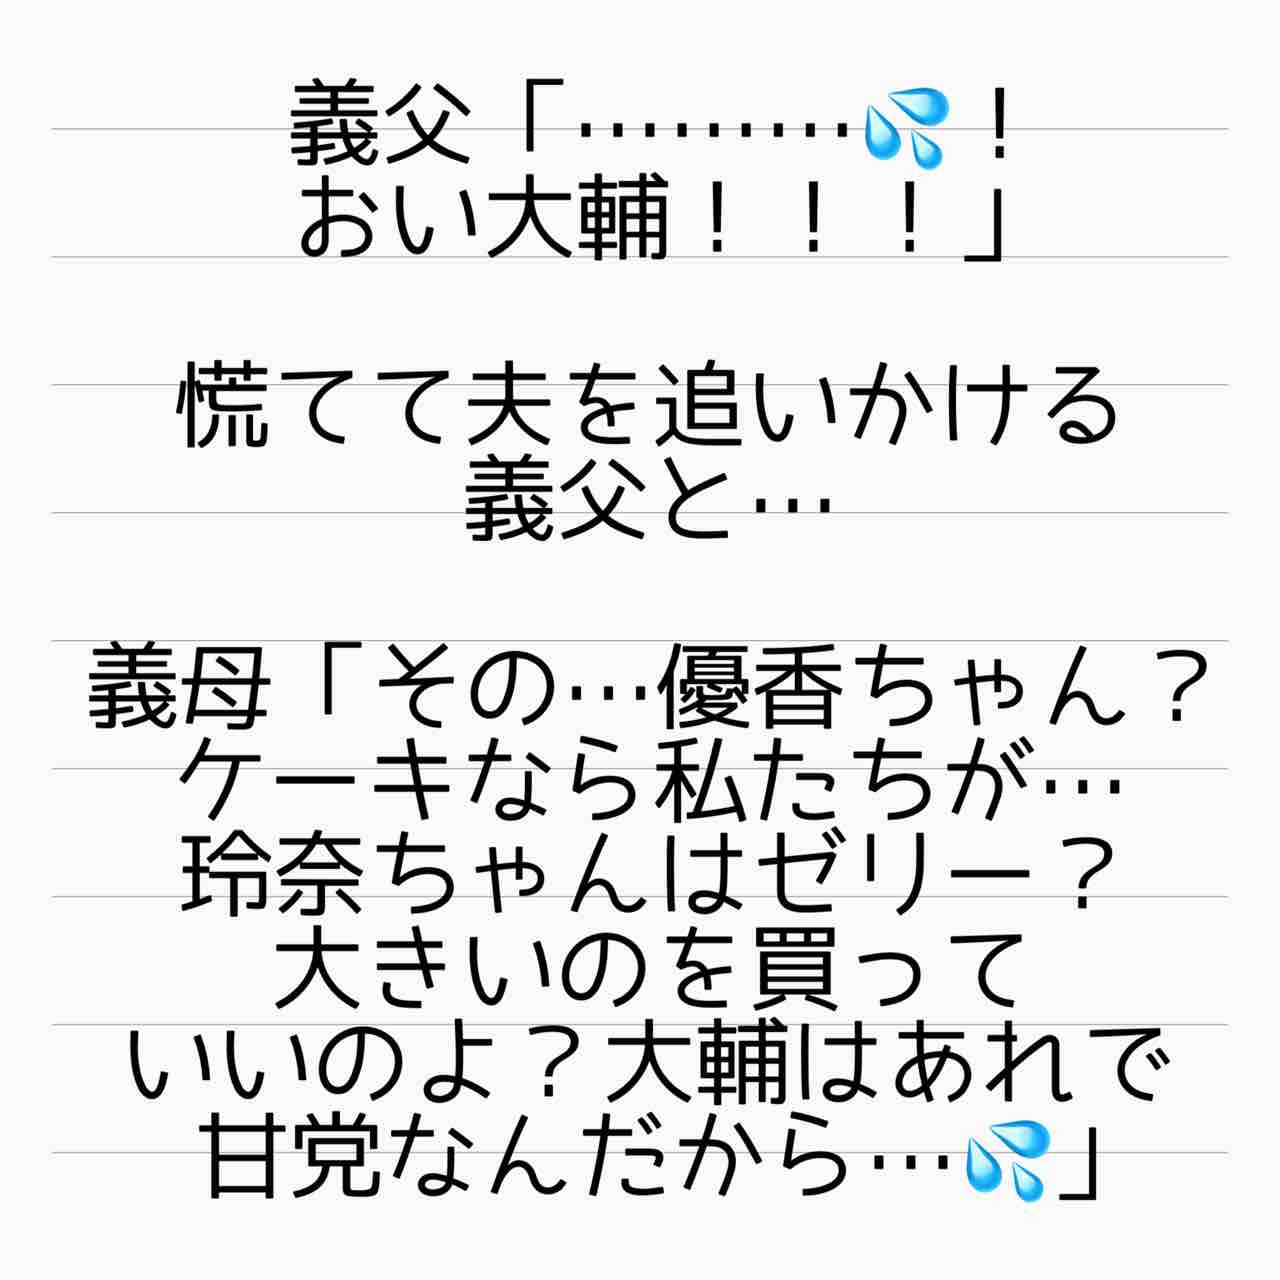 義父「………💦！
おい大輔！！！」
慌てて夫を追いかける
義父と…
義母「その…優香ちゃん？
ケーキなら私たちが…
玲奈ちゃんはゼリー？
大きいのを買って
いいのよ？大輔はあれで
甘党なんだから…💦」